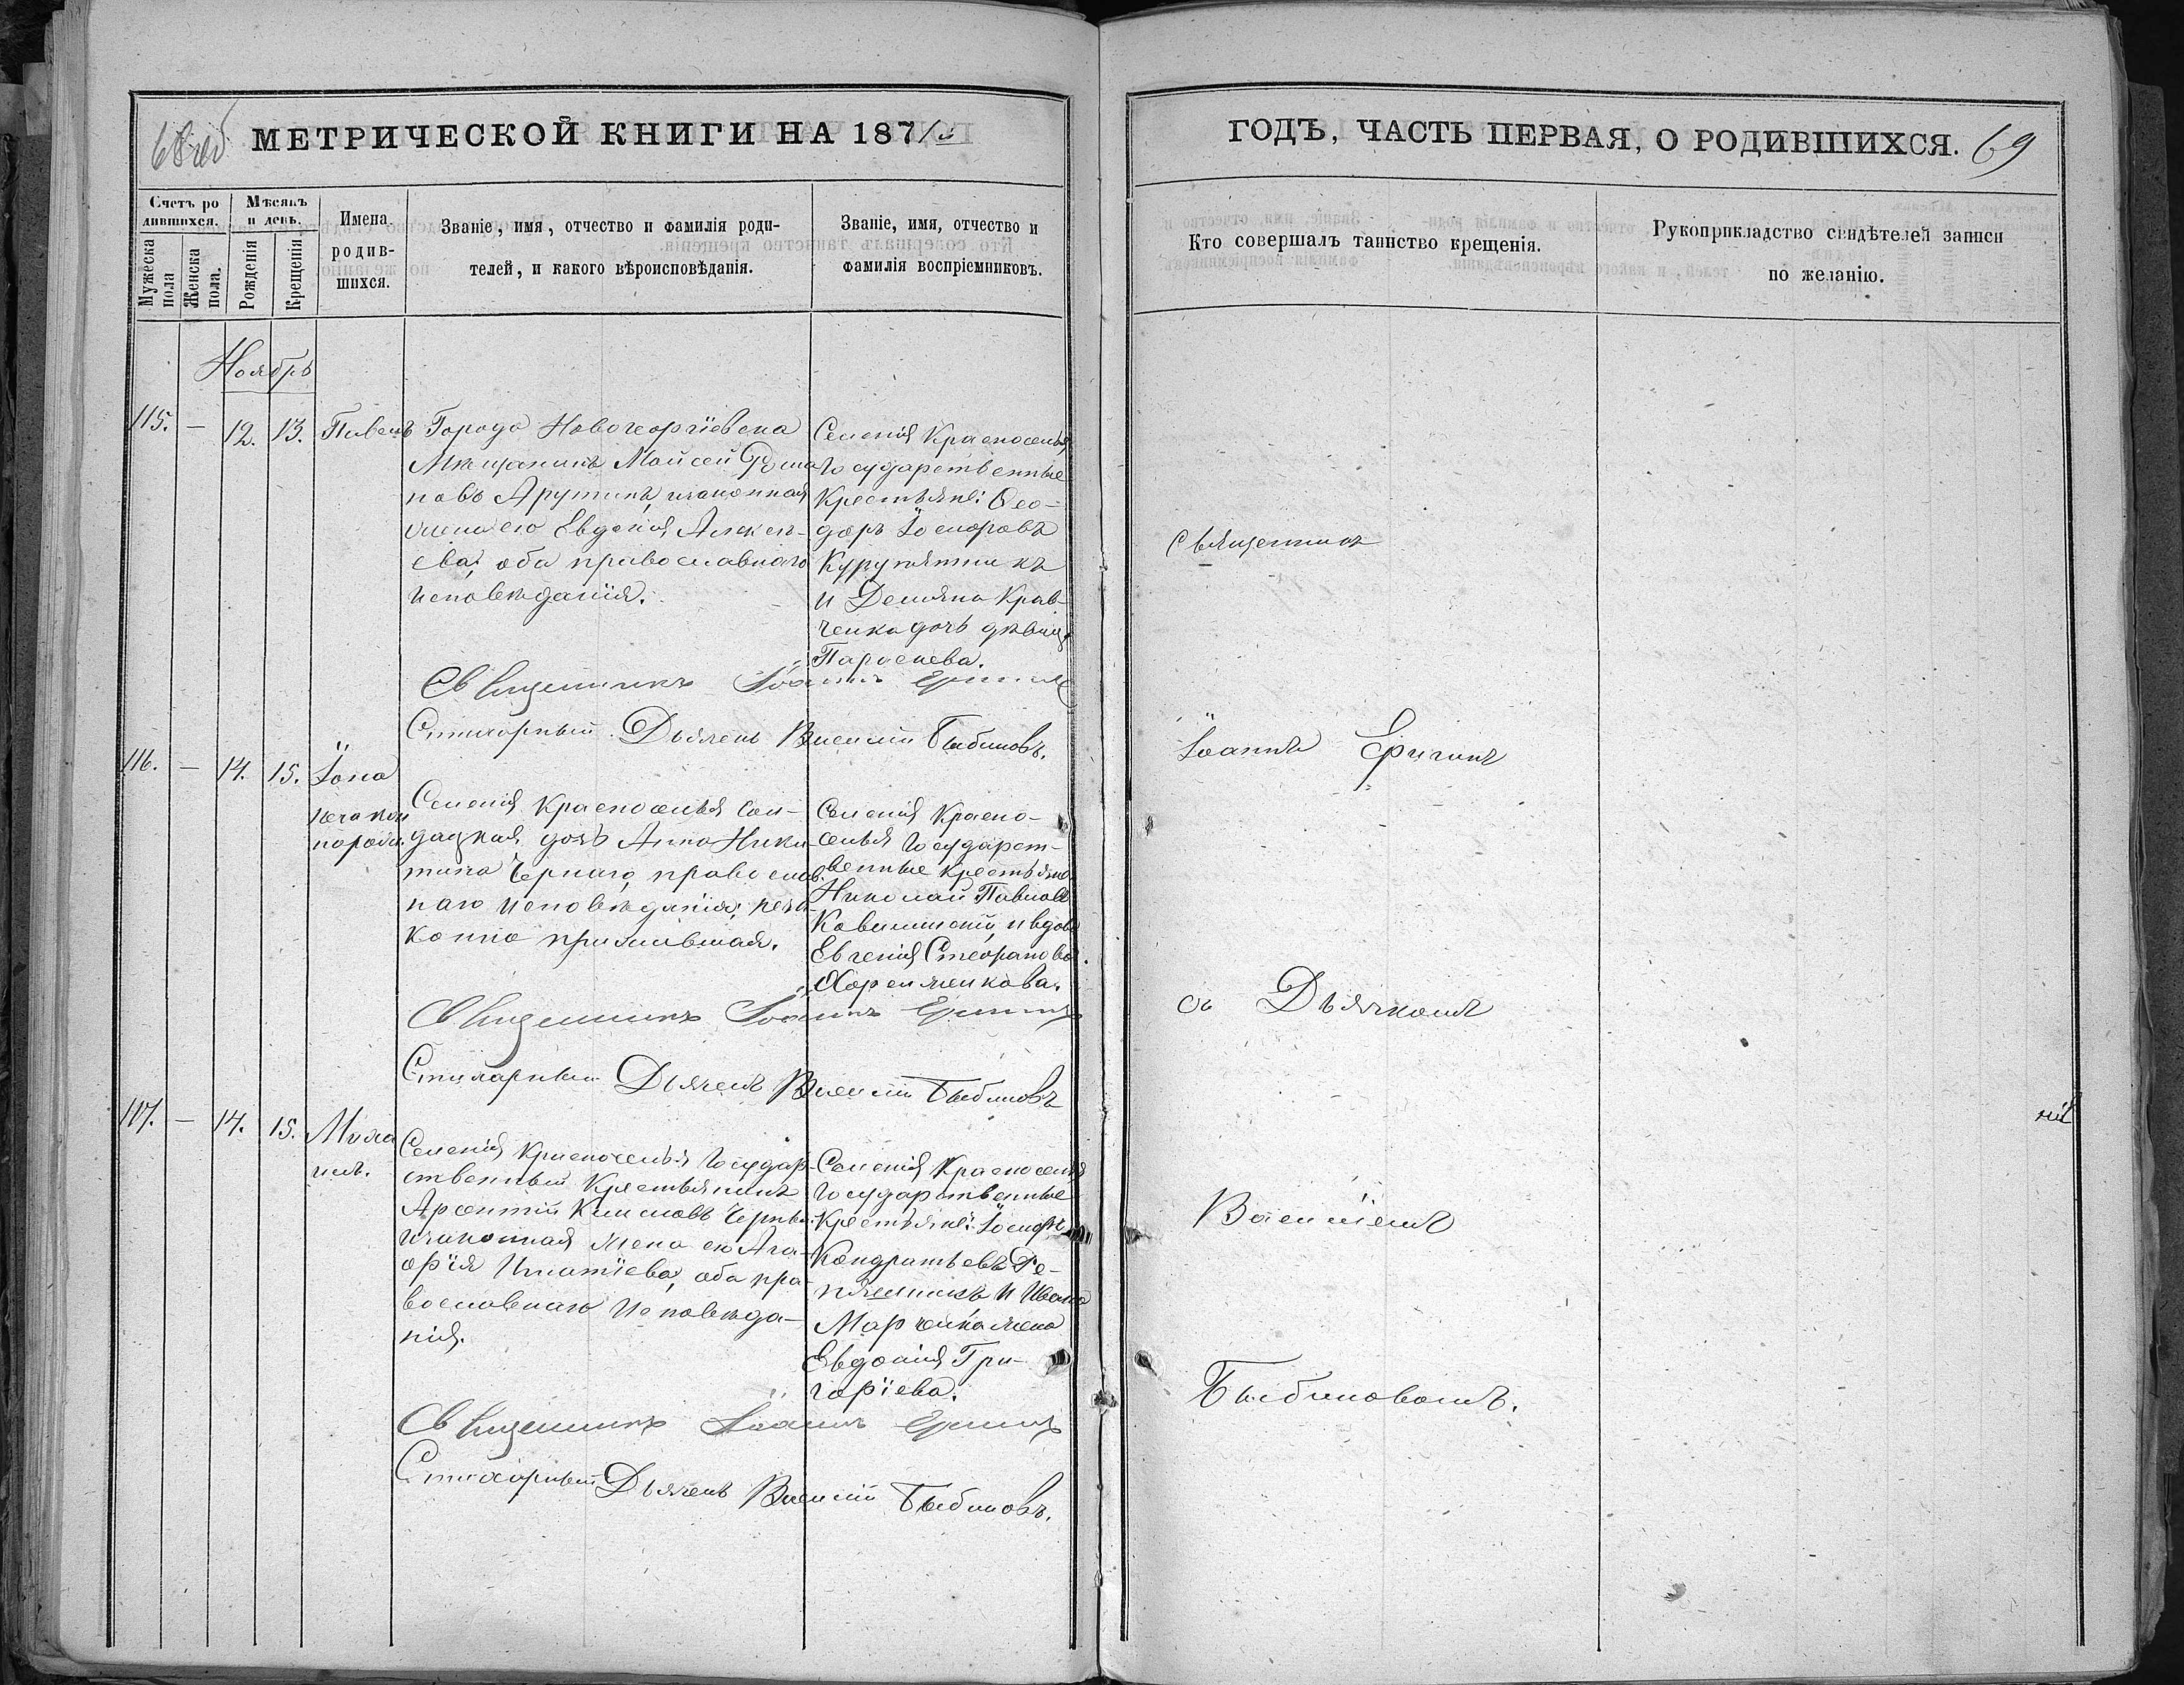 68 об
МЕТРИЧЕСКОЙ КНИГИ НА 187
ГОДЪ, ЧАСТЬ ПЕРВАЯ, О РОДИВШИХСЯ. 69
Счетъ ро
дившихся.
Мужеска
пола
Женска
пола.
Мѣсяцъ
и день.
Рожденія
Крещенія
Имена
родив-
шихся.
Званіе, имя, отчество и фамилія роди-
телей, и какого вѣроисповѣданія.
Званіе, имя, отчество и
фамилія воспріемниковъ.
Кто совершалъ таинство крещенія.
Рукоприкладство свидѣтелей записи
по желанію.
Ноябрь
115. – 12. 13. Павелъ
Города Новогеоргіевска
Мѣщанинъ Моисей Рома
новъ Арутинъ, и законная
жена его Евдокія Алексѣ-
ева; оба православнаго
исповѣданія.
Селенія Красноселья,
Государственные
Крестьяне: Ѳео-
доръ Іосифовъ
и Деміяна Крав-
ченка дочь дѣвица
Параскева.
Священникъ Іоаннъ Еричъ
Стихарный Дьячекъ Василій Быбиковъ.
116. – 14. 15. Іона
незакон
норожд.
Селенія Красноселья Сол-
дацкая дочь Анна Ники-
тина Чернаго, православ-
наго исповѣданія; неза-
конно прижившая.
Селенія Красно-
селья Государст-
венные крестьяне
Николай Павловъ
и вдова
Евгенія Стефанова
Священникъ Іоаннъ Еричъ
Стихарный Дьячекъ Василій Быбиковъ
117. – 14. 15. Миха
илъ.
Селенія Красноселья Государ-
ственный Крестьянинъ
Арсентій Климовъ Черный
и законная жена его Ага-
фія Игнатіева, оба пра-
вославнаго исповѣда-
нія.
Селенія Красноселья
Государственные
Крестьяне: Іосифъ
Кондратьевъ Ре-
и Ивана
Марченка жена
Евдокія Гри-
горіева.
Священникъ Іоаннъ Еричъ
Стихарный Дьячекъ Василій Быбиковъ.
Священникъ
Іоаннъ
съ Дьячкомъ
Василіемъ
Быбиковымъ.